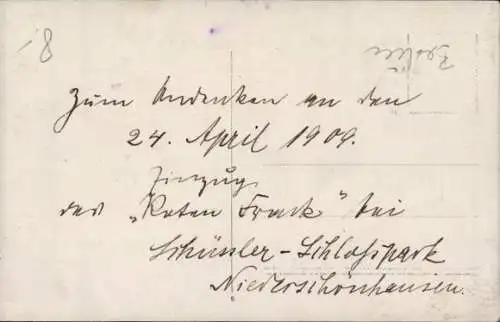 18
Berlin
Zum Andenken an den
24. April 1909.
Einzug
des „Roten Frack" bei
Schüssler-Schlosspark
Niederschönhausen.